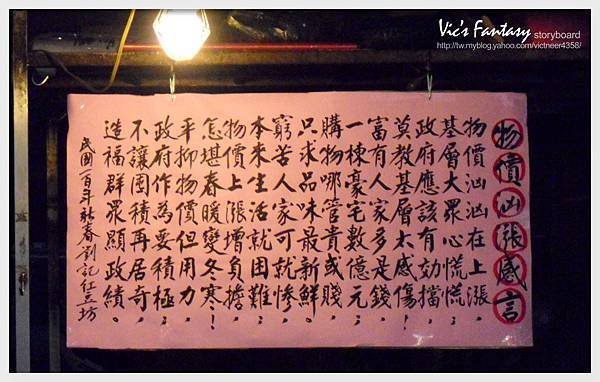 Vic's Fantasy storyboard
http://tw.myblog.yahoo.com/victneer4358/
物價汹漲感言
物價汹汹在上漲，
基層大眾心慌慌；
政府應該有効擋，
莫教基層太感傷！
富有人家多是錢，
一棟豪宅數億元；
購物哪管貴或賤，
只求品味最新鮮。
窮苦人家可就慘，
本來生活就困難；
物價上漲增負擔，
怎堪春暖變冬寒！
平抑物價但用力，
政府作為要積極；
不讓囤積再居奇，
造福群眾顯政績。
民國一百年新春劉記红豆坊